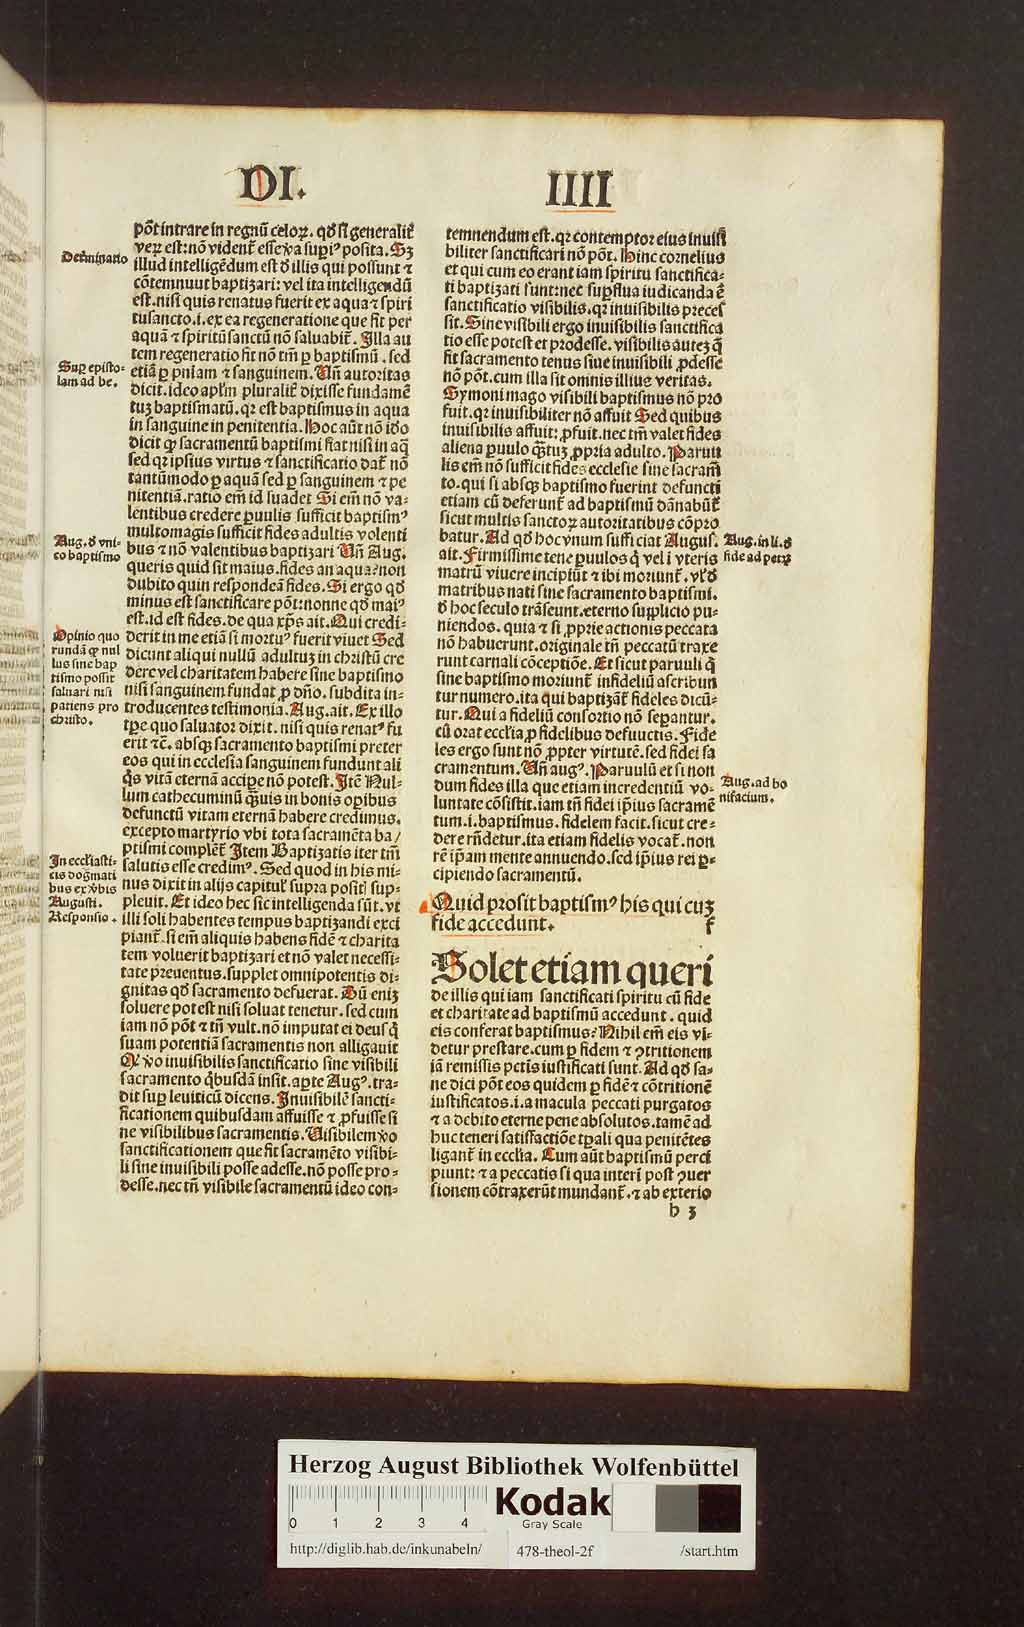 DI.
IIII
põt intrare in regnũ celoꝝ. qđ si generaliť
Deťminatio
veꝝ est: nõ videnť esse ꝟa supiꝰ posita. Sꝫ
illud intelligẽdum est đ illis qui possunt ⁊
cõtemnuut baptizari: vel ita intelligendũ
est. nisi quis renatus fuerit ex aqua ⁊ spiri
tusancto .i. ex ea regeneratione que fit per
aquã ⁊ spiritũ sanctũ nõ saluabiť. Illa au
tem regeneratio fit nõ tm̃ ꝑ baptismũ . sed
Suꝑ episto-
lam ad he.
etiã ꝑ pniam ⁊ sanguinem. Vñ autoritas
dicit. ideo apl̃m pluraliť dixisse fundamẽ
tuꝫ baptismatũ. qꝛ est baptismus in aqua
in sanguine in penitentia. Hoc aũt nõ iđo
dicit ꝙ sacramentũ baptismi fiat nisi in aq̃
sed qꝛ ipsius virtus ⁊ sanctificatio dať nõ
tantũmodo ꝑ aquã sed ꝑ sanguinem ⁊ pe
nitentiã. ratio em̃ id suadet Si em̃ nõ va-
lentibus credere ꝑuulis sufficit baptismꝰ
multomagis sufficit fides adultis volenti
Aug. đ vni-
co baptismo
bus ⁊ nõ valentibus baptizari Vñ Aug.
queris quid sit maius. fides an aqua? non
dubito quin respondeã fides. Si ergo qđ
minus est sanctificare põt: nonne qđ maiꝰ
est. id est fides. de qua xp̃s ait. Qui credi-
Opinio quo
rundã ꝙ nul
lus sine bap
tismo possit
saluari nisi
patiens pro
christo.
derit in me etiã si mortuꝰ fuerit viuet Sed
dicunt aliqui nullũ adultuꝫ in christũ cre
dere vel charitatem habere sine baptismo
nisi sanguinem fundat ꝓ dño. subdita in-
troducentes testimonia. Aug. ait. Ex illo
tꝑe quo saluator dixit. nisi quis renatꝰ fu
erit ⁊c̃. absqꝫ sacramento baptismi preter
eos qui in ecclesia sanguinem fundunt ali
q̃s vitã eternã accipe nõ potest. Itẽ Nul-
lum cathecuminũ q̃uis in bonis oꝑibus
defunctũ vitam eternã habere credimus.
excepto martyrio vbi tota sacramẽta ba/
ptismi complẽť Item Baptizatis iter tm̃
In eccl̃iasti-
cis dogmati
bus ex ꝟbis
Augusti.
Responsio .
salutis esse credimꝰ. Sed quod in his mi-
nus dixit in alijs capitul̃ supra posit̃ sup-
pleuit. Et ideo hec sic intelligenda sũt. vt
illi soli habentes tempus baptizandi exci
pianť. si em̃ aliquis habens fidẽ ⁊ charita
tem voluerit baptizari et nõ valet necessi-
tate preuentus. supplet omnipotentis di-
gnitas qđ sacramento defuerat. Dũ eniꝫ
soluere potest nisi soluat tenetur. sed cum
iam nõ põt ⁊ tñ vult. nõ imputat ei deus q̃
suam potentiã sacramentis non alligauit
Q ꝟo inuisibilis sanctificatio sine visibili
sacramento q̃busdã insit. aꝑte Augꝰ. tra-
dit suꝑ leuiticũ dicens. Inuisibilẽ sancti-
ficationem quibusdam affuisse ⁊ ꝓfuisse si
ne visibilibus sacramentis. Visibilem ꝟo
sanctificationem que fit sacramẽto visibi-
li sine inuisibili posse adesse. nõ posse pro-
desse. nec tñ visibile sacramentũ ideo con-
temnendum est. qꝛ contemptor eius inuisi
biliter sanctificari nõ põt. Hinc cornelius
et qui cum eo erant iam spiritu sanctifica-
ti baptizati sunt: nec suꝑflua iudicanda ẽ
sanctificatio visibilis. qꝛ inuisibilis preces
sit. Sine visibili ergo inuisibilis sanctifica
tio esse potest et prodesse. visibilis auteꝫ q̃
fit sacramento tenus siue inuisibili ꝓdesse
nõ põt. cum illa sit omnis illius veritas.
Symoni mago visibili baptismus nõ pro
fuit. qꝛ inuisibiliter nõ affuit Sed quibus
inuisibilis affuit: ꝓfuit. nec tm̃ valet fides
aliena ꝑuulo q̃tuꝫ ꝓpria adulto. Paruu
lis em̃ nõ sufficit fides ecclesie sine sacram̃
to. qui si absqꝫ baptismo fuerint defuncti
etiam cũ deferunť ad baptismũ dãnabũť
sicut multis sanctoꝝ autoritatibus cõpro
batur. Ad qđ hoc vnum sufficiat Augus.
Aug. in li. đ
fide ad petꝝ
ait. Firmissime tene ꝑuulos q̃ vel i vteris
matrũ viuere incipiũt ⁊ ibi moriunť. vl̃ đ
matribus nati sine sacramento baptismi.
đ hoc seculo trãseunt. eterno suꝑplicio pu-
niendos. quia ⁊ si ꝓprie actionis peccata
nõ habuerunt. originale tñ peccatũ traxe
runt carnali cõceptiõe. Et sicut paruuli q̃
sine baptismo moriunť infideliũ ascribun
tur numero. ita qui baptizãť fideles dicũ-
tur. Qui a fideliũ consortio nõ seꝑantur.
cũ orat eccl̃ia ꝓ fidelibus defuuctis. Fide
les ergo sunt nõ ꝓpter virtutẽ. sed fidei sa
cramentum. Vñ augꝰ. Paruulũ et si non
Aug. ad bo
nifacium.
dum fides illa que etiam incredentiũ vo-
luntate cõsistit. iam tñ fidei ip̃ius sacramẽ
tum .i. baptismus. fidelem facit. sicut cre-
dere rñdetur. ita etiam fidelis vocať. non
rẽ ip̃am mente annuendo. sed ip̃ius rei ꝑ-
cipiendo sacramentũ.
Quid prosit baptismꝰ his qui cuꝫ
fide accedunt.
f
Solet etiam queri
de illis qui iam sanctificati spiritu cũ fide
et charitate ad baptismũ accedunt . quid
eis conferat baptismus? Nihil em̃ eis vi-
detur prestare. cum ꝑ fidem ⁊ ꝯtritionem
iã remissis pctis iustificati sunt. Ad qđ sa-
ne dici põt eos quidem ꝑ fidẽ ⁊ cõtritionẽ
iustificatos .i. a macula peccati purgatos
⁊ a debito eterne pene absolutos. tamẽ ad
huc teneri satisfactiõe tꝑali qua penitẽtes
liganť in eccl̃ia. Cum aũt baptismũ perci
piunt: ⁊ a peccatis si qua interi post ꝯuer
sionem cõtraxerũt mundanť. ⁊ ab exterio
b 3
Herzog August Bibliothek Wolfenbüttel
0 1 2 3 4
Kodak
Gray Scale
http://diglib.hab.de/inkunabeln/ 478-theol-2f /start.htm